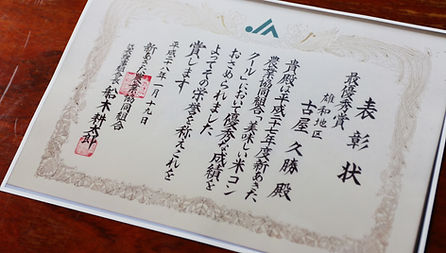 表彰状
最優秀賞
雄和地区
古屋久勝殿
貴殿は平成二十七年度新あきた
農業協同組合「美味しい米コン
クール」において優秀な成績を
おさめられました
よってその栄誉を称えこれを
賞します
平成二十八年一月二十九日
新あきた農業協同組合
船木耕太郎